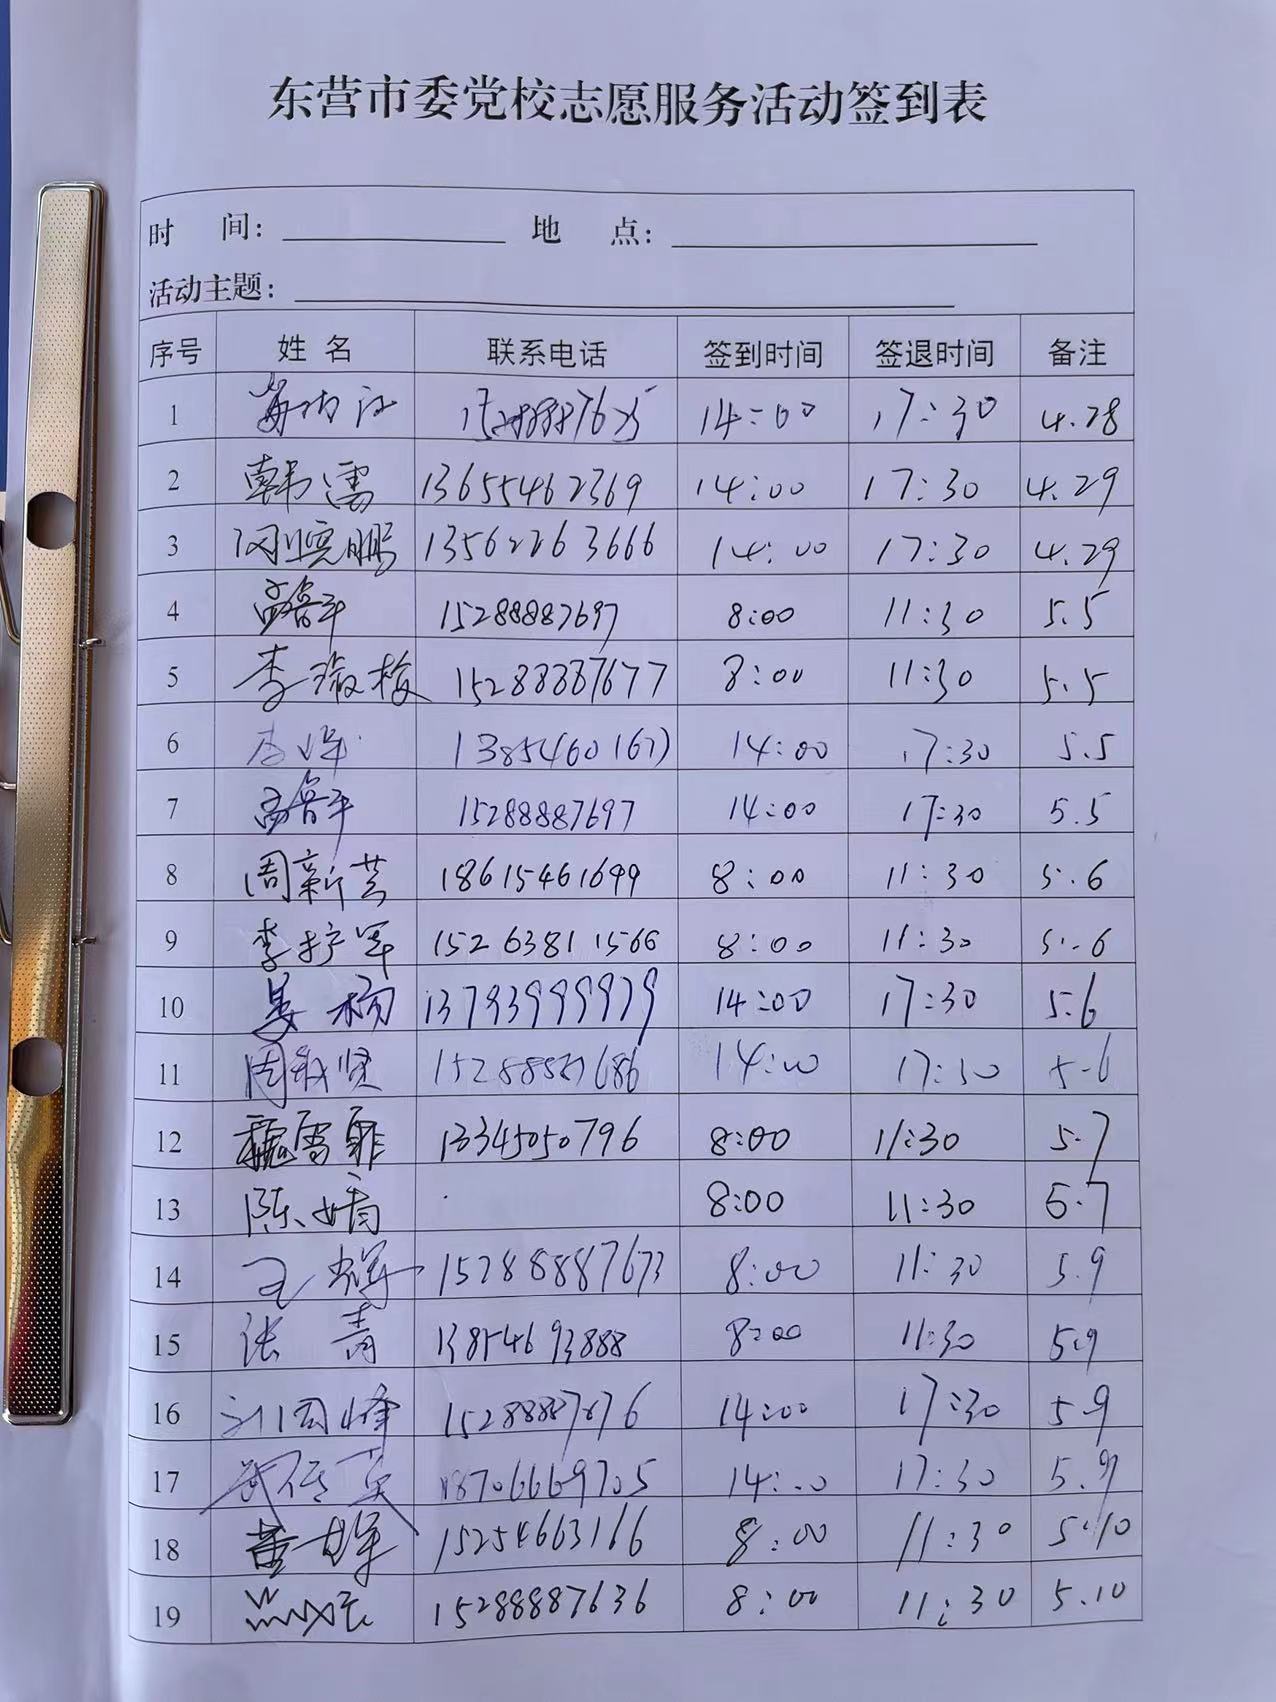 东营市委党校志愿服务活动签到表
时 间: 地 点:
活动主题:
序号 姓 名 联系电话 签到时间 签退时间 备注
1 14:00 17:30 4.28
2 韩雪 13655462369 14:00 17:30 4.29
3 13562263666 14:00 17:30 4.29
4 孟鲁平 15288887697 8:00 11:30 5.5
5 李淑梅 15288887677 8:00 11:30 5.5
6 14:00 17:30 5.5
7 孟鲁平 15288887697 14:00 17:30 5.5
8 周新芸 18615461699 8:00 11:30 5.6
9 李护军 15263811566 8:00 11:30 5.6
10 姜杨 13793999979 14:00 17:30 5.6
11 14:00 17:30 5.6
12 魏雪菲 13345050796 8:00 11:30 5.7
13 陈婧 8:00 11:30 5.7
14 王辉 15288887673 8:00 11:30 5.9
15 张青 13854693888 8:00 11:30 5.9
16 刘国峰 15288887676 14:00 17:30 5.9
17 18706669705 14:00 17:30 5.9
18 15254663166 8:00 11:30 5.10
19 15288887636 8:00 11:30 5.10